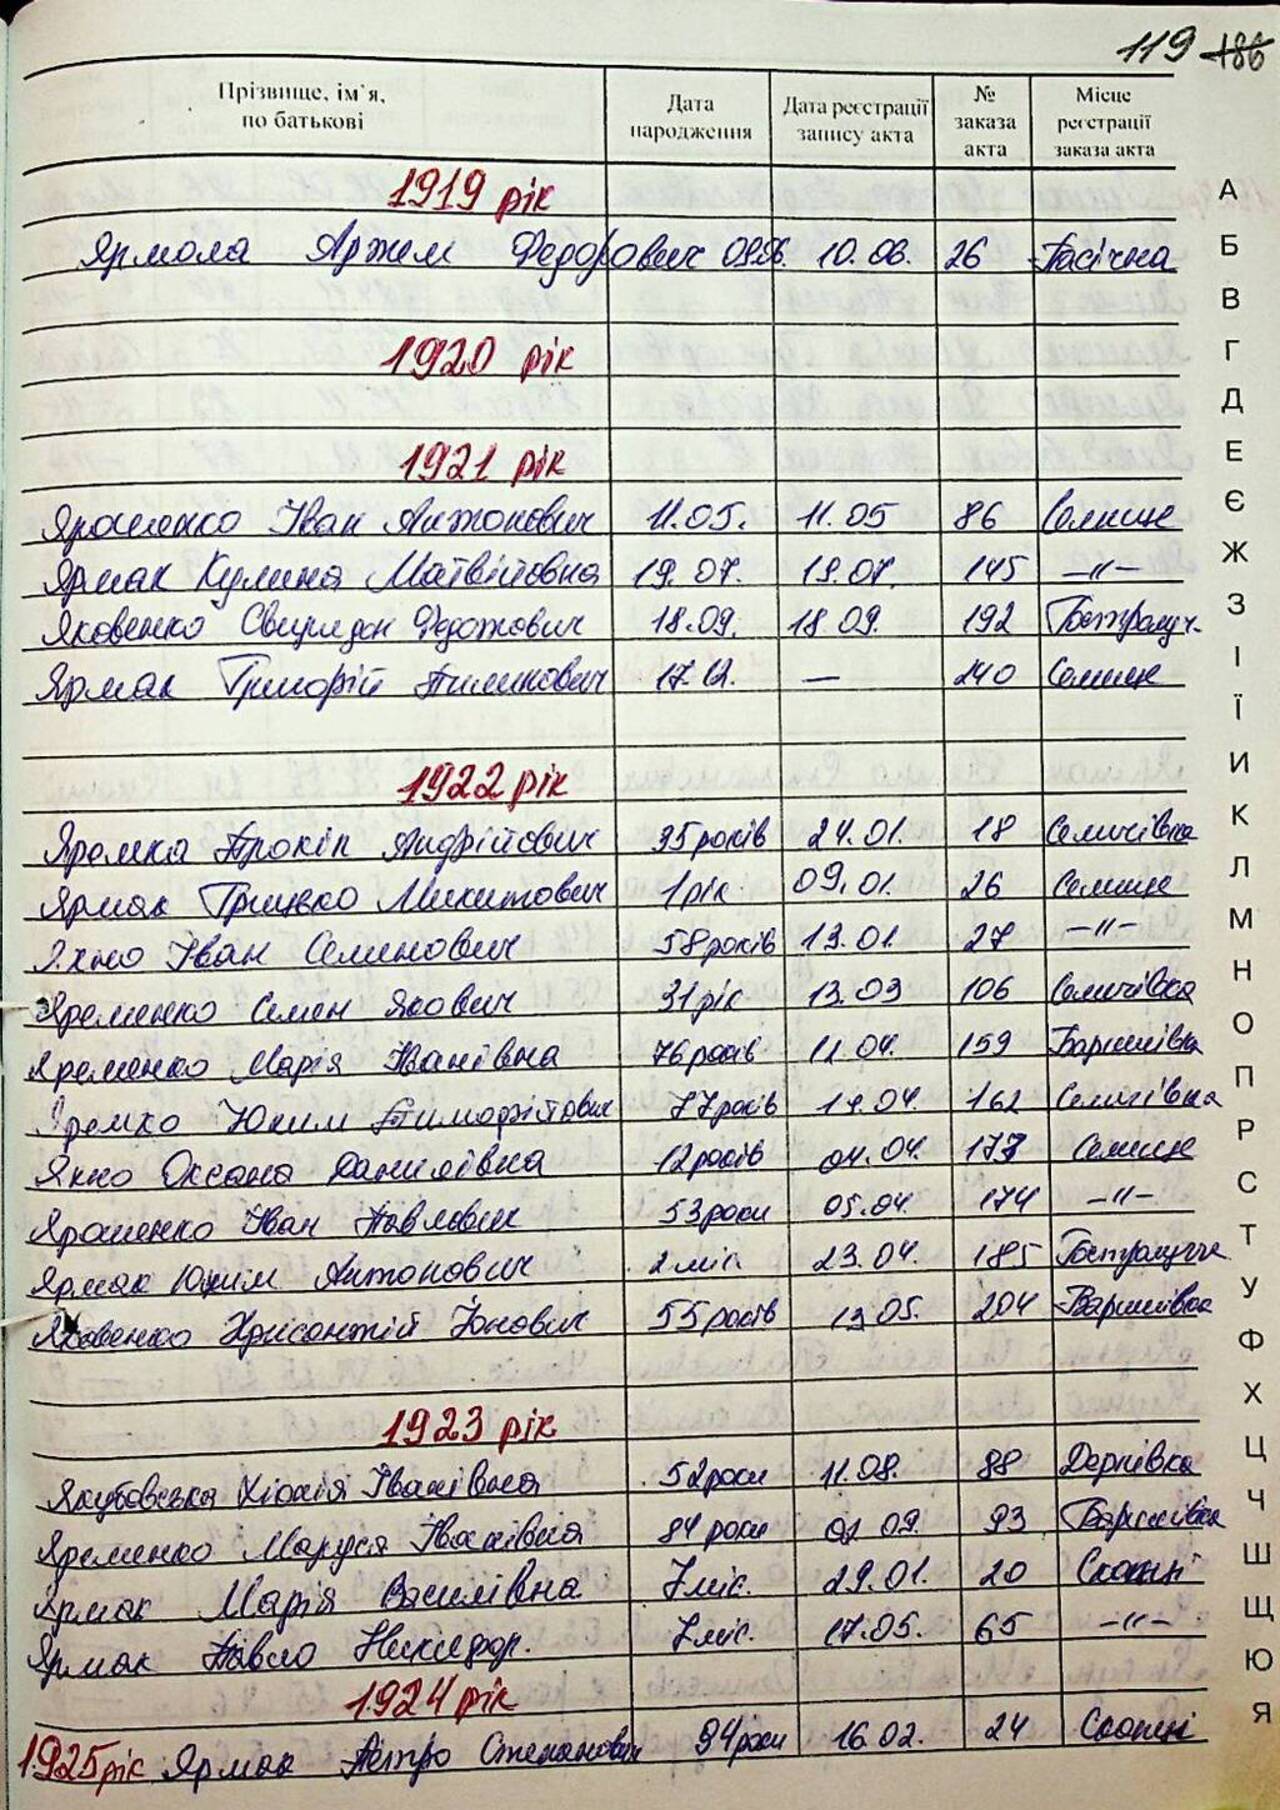 119 186
Прізвище, ім'я, по батькові Дата народження Дата реєстрації запису акта № заказа акта Місце реєстрації заказа акта
1919 рік
Ярмола Артем Федорович 09.06. 10.06. 26 Пасічна
1920 рік
1921 рік
Ярошенко Іван Антонович 11.05. 11.05 86 Селище
Ярмак Кулина Матвіївна 19.07. 19.07. 145 -"-
Яковенко Свиридон Федотович 18.09. 18.09. 192 Гостролуч.
Ярмак Григорій Пилипович 17.12. — 240 Селище
1922 рік
Яремка Прокіп Андрійович 35 років 24.01. 18 Селичівка
Ярмак Грицько Микитович 1 рік 09.01. 26 Селище
Яхно Іван Семенович 58 років 13.01. 27 -"-
Яременко Семен Якович 31 рік 13.03 106 Селичівка
Яременко Марія Іванівна 76 років 11.04. 159 Баришівка
Яремко Юхим Тимофійович 77 років 14.04. 162 Селичівка
Яхно Оксана Данилівна 12 років 04.04. 173 Селище
Ярошенко Іван Павлович 53 роки 05.04. 174 -"-
Ярмак Юхим Антонович 2 міс. 23.04. 185 Гостролуччя
Яковенко Хрисантій Іонович 55 років 13.05. 204 Баришівка
1923 рік
Якубовська Хіонія Іванівна 52 роки 11.08. 88 Дернівка
Яременко Маруся Іванівна 84 роки 02.09. 93 Баришівка
Ярмак Марія Василівна 7 міс. 29.01. 20 Скопці
Ярмак Павло Никифор. 7 міс. 17.05. 65 -"-
1924 рік
1925 рік Ярмак Петро Степанович 34 роки 16.02. 24 Скопці
А
Б
В
Г
Д
Е
Є
Ж
З
І
Ї
И
К
Л
М
Н
О
П
Р
С
Т
У
Ф
Х
Ц
Ч
Ш
Щ
Ю
Я